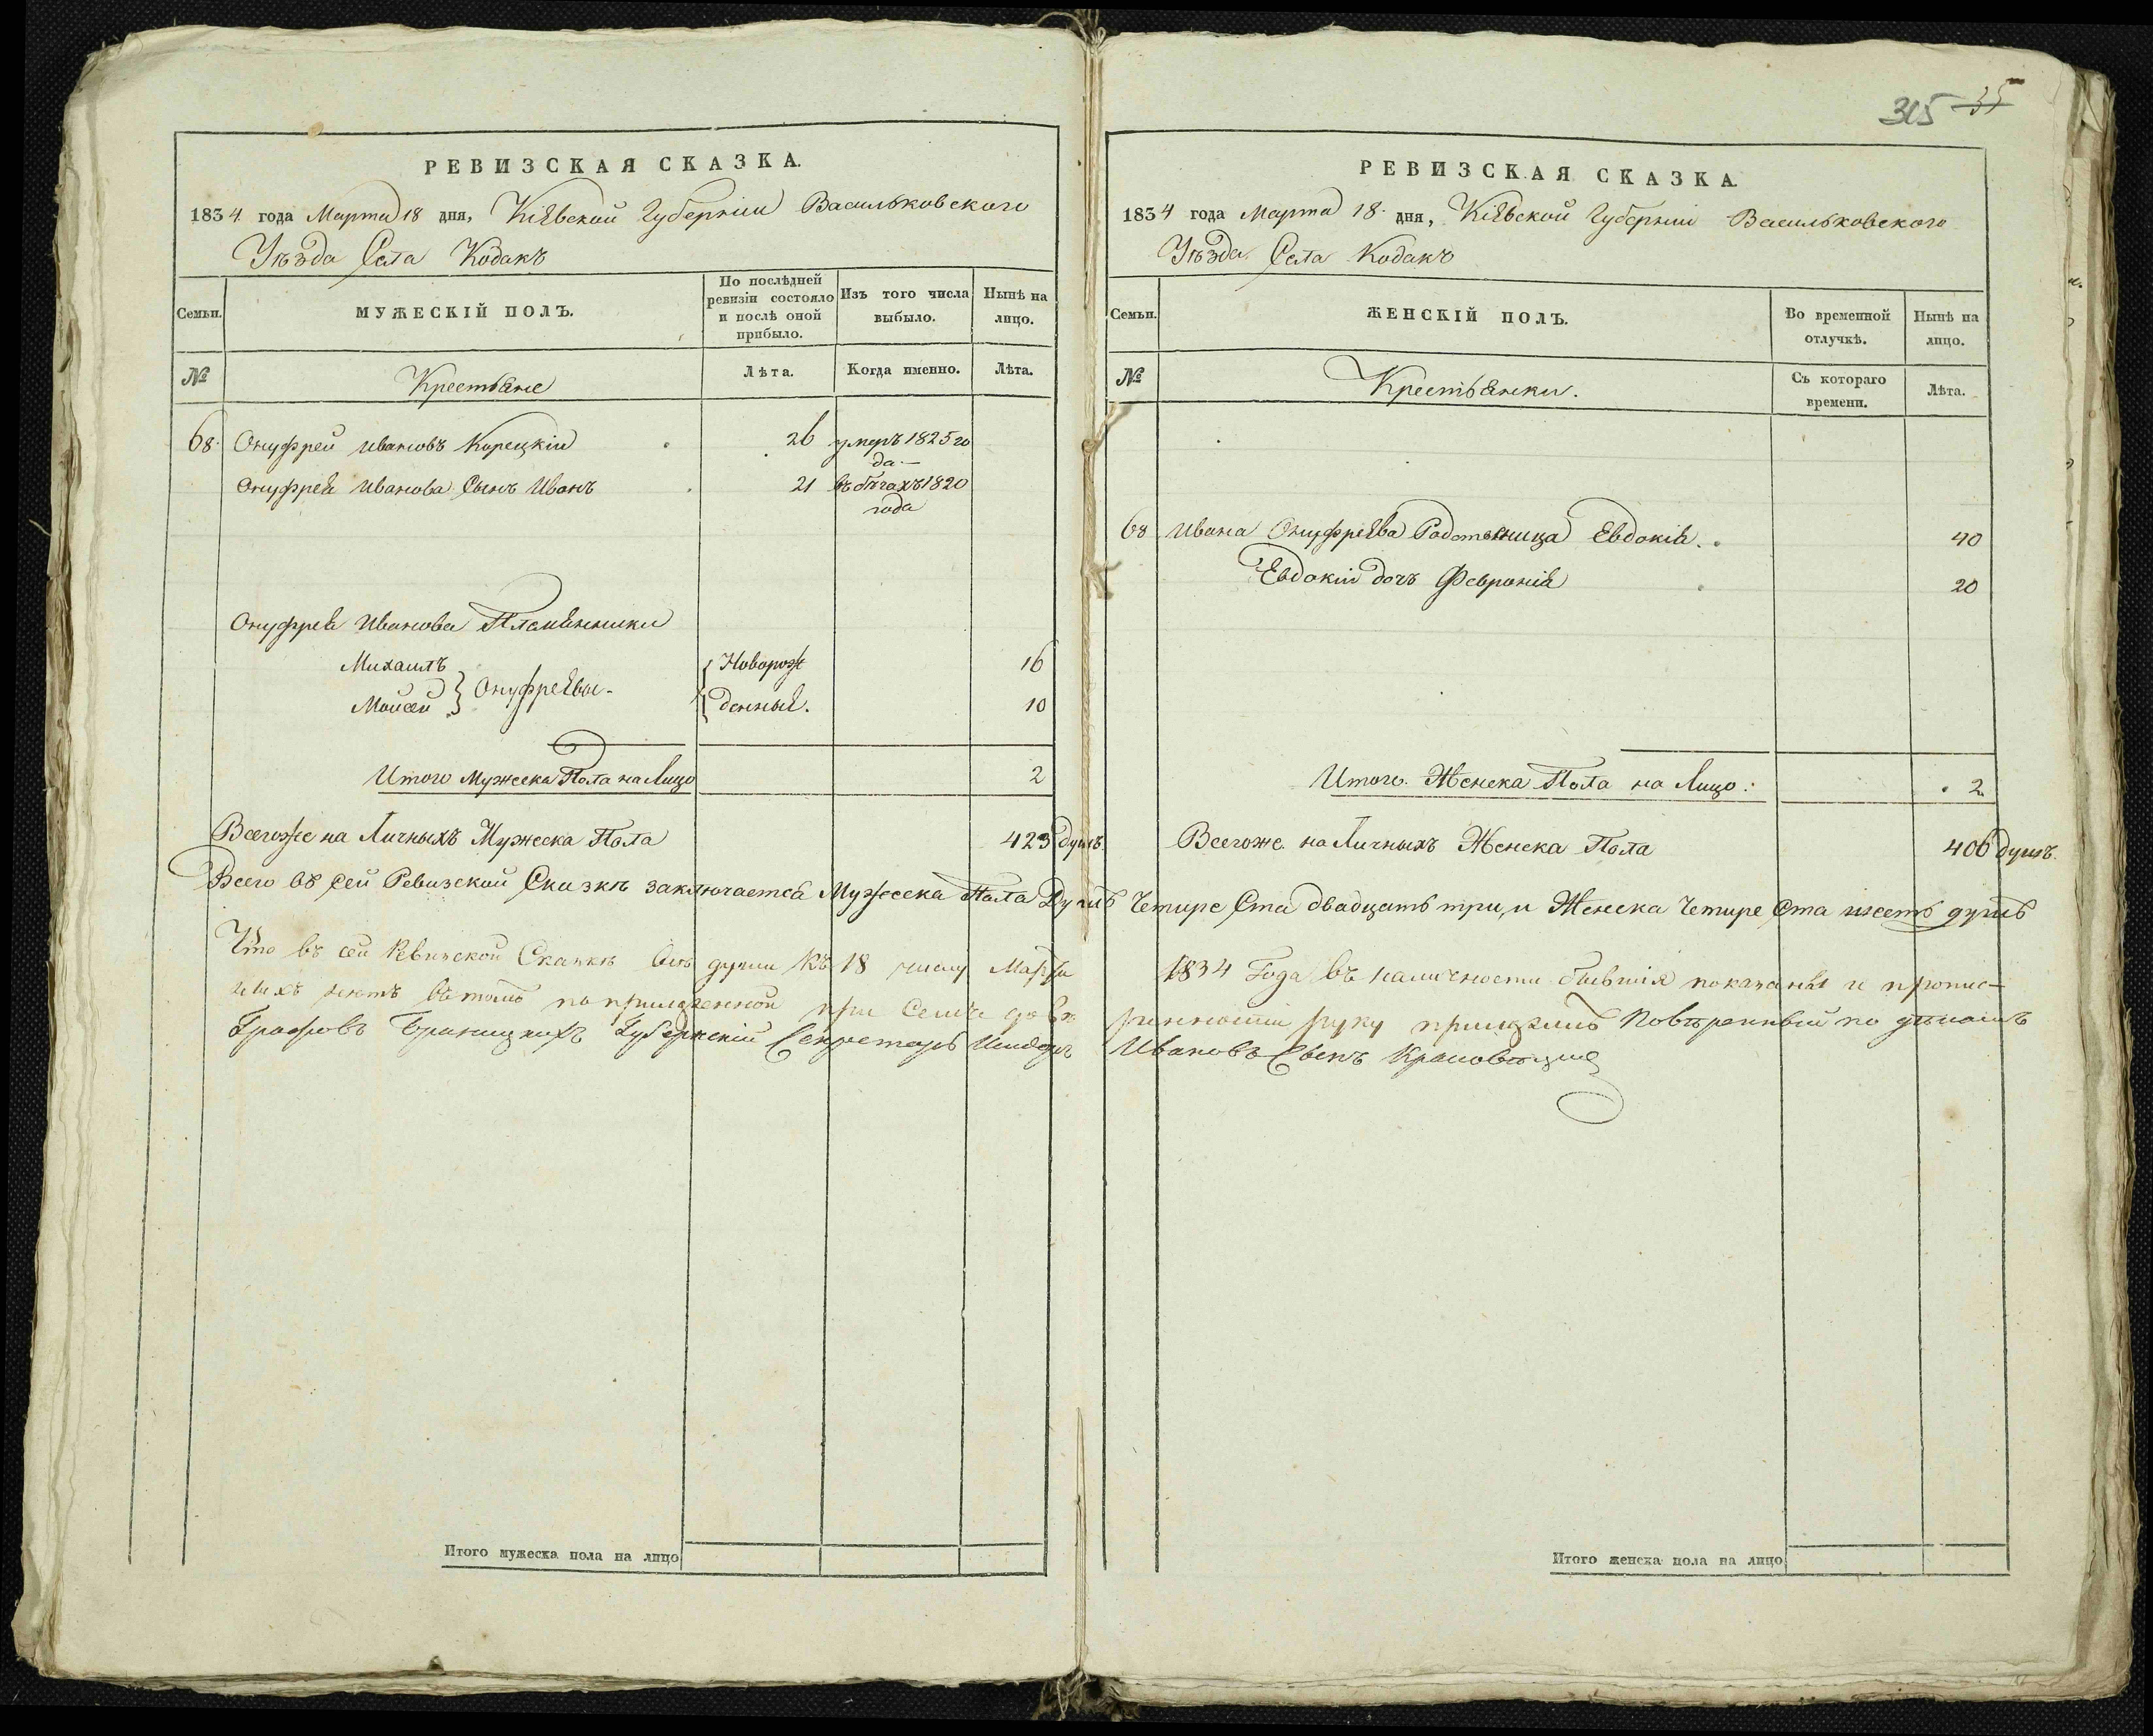 315 35
РЕВИЗСКАЯ СКАЗКА.
1834 года Марта 18 дня, Кіевской Губерніи Васильковского
Уѣзда Села Кодакъ
Семьи.
МУЖЕСКІЙ ПОЛЪ.
По послѣдней ревизіи состояло и послѣ оной прибыло.
Изъ того числа выбыло.
Нынѣ на лицо.
№
Крестьяне
Лѣта.
Когда именно.
Лѣта.
68. Онуфрей Ивановъ Корецкій 26 умеръ 1825 го
да.—
Онуфрея Иванова Сынъ Иванъ 21 въ бѣгахъ 1820
года
Онуфрея Иванова Племянники
Михаилъ Новорож 16
Онуфреевы
Мойсей денныя. 10
Итого Мужеска Пола на Лицо 2
Всегоже на Личныхъ Мужеска Пола 423 душъ
РЕВИЗСКАЯ СКАЗКА
1834 года Марта 18 дня, Кіевской Губерніи Васильковского
Уѣзда Села Кодакъ
Семьи.
ЖЕНСКІЙ ПОЛЪ.
Во временной отлучкѣ.
Нынѣ на лицо.
№
Крестьянки.
Съ котораго времени.
Лѣта.
68 Ивана Онуфреева Работница Евдокія 40
Евдокіи дочъ Февронія 20
Итого Женска Пола на Лицо: 2
Всегоже на Личныхъ Женска Пола 406 душъ.
Всего въ сей Ревизской Сказкѣ заключается Мужеска Пола Душъ Четире Ста двадцать три, и Женска Четире Ста шесть душъ
Что въ сей Ревизской Сказкѣ всѣ души къ 18 числу Марта 1834 Года въ наличности бывшія показаны и пропис-
ныхъ нѣтъ въ томъ по приложенной при семъ довѣ ренности руку приложилъ Повѣренный по дѣламъ
Графовъ Браницкихъ Губернскій Секретарь Ивановъ Сынъ
Итого мужеска пола на лицо
Итого женска пола на лицо